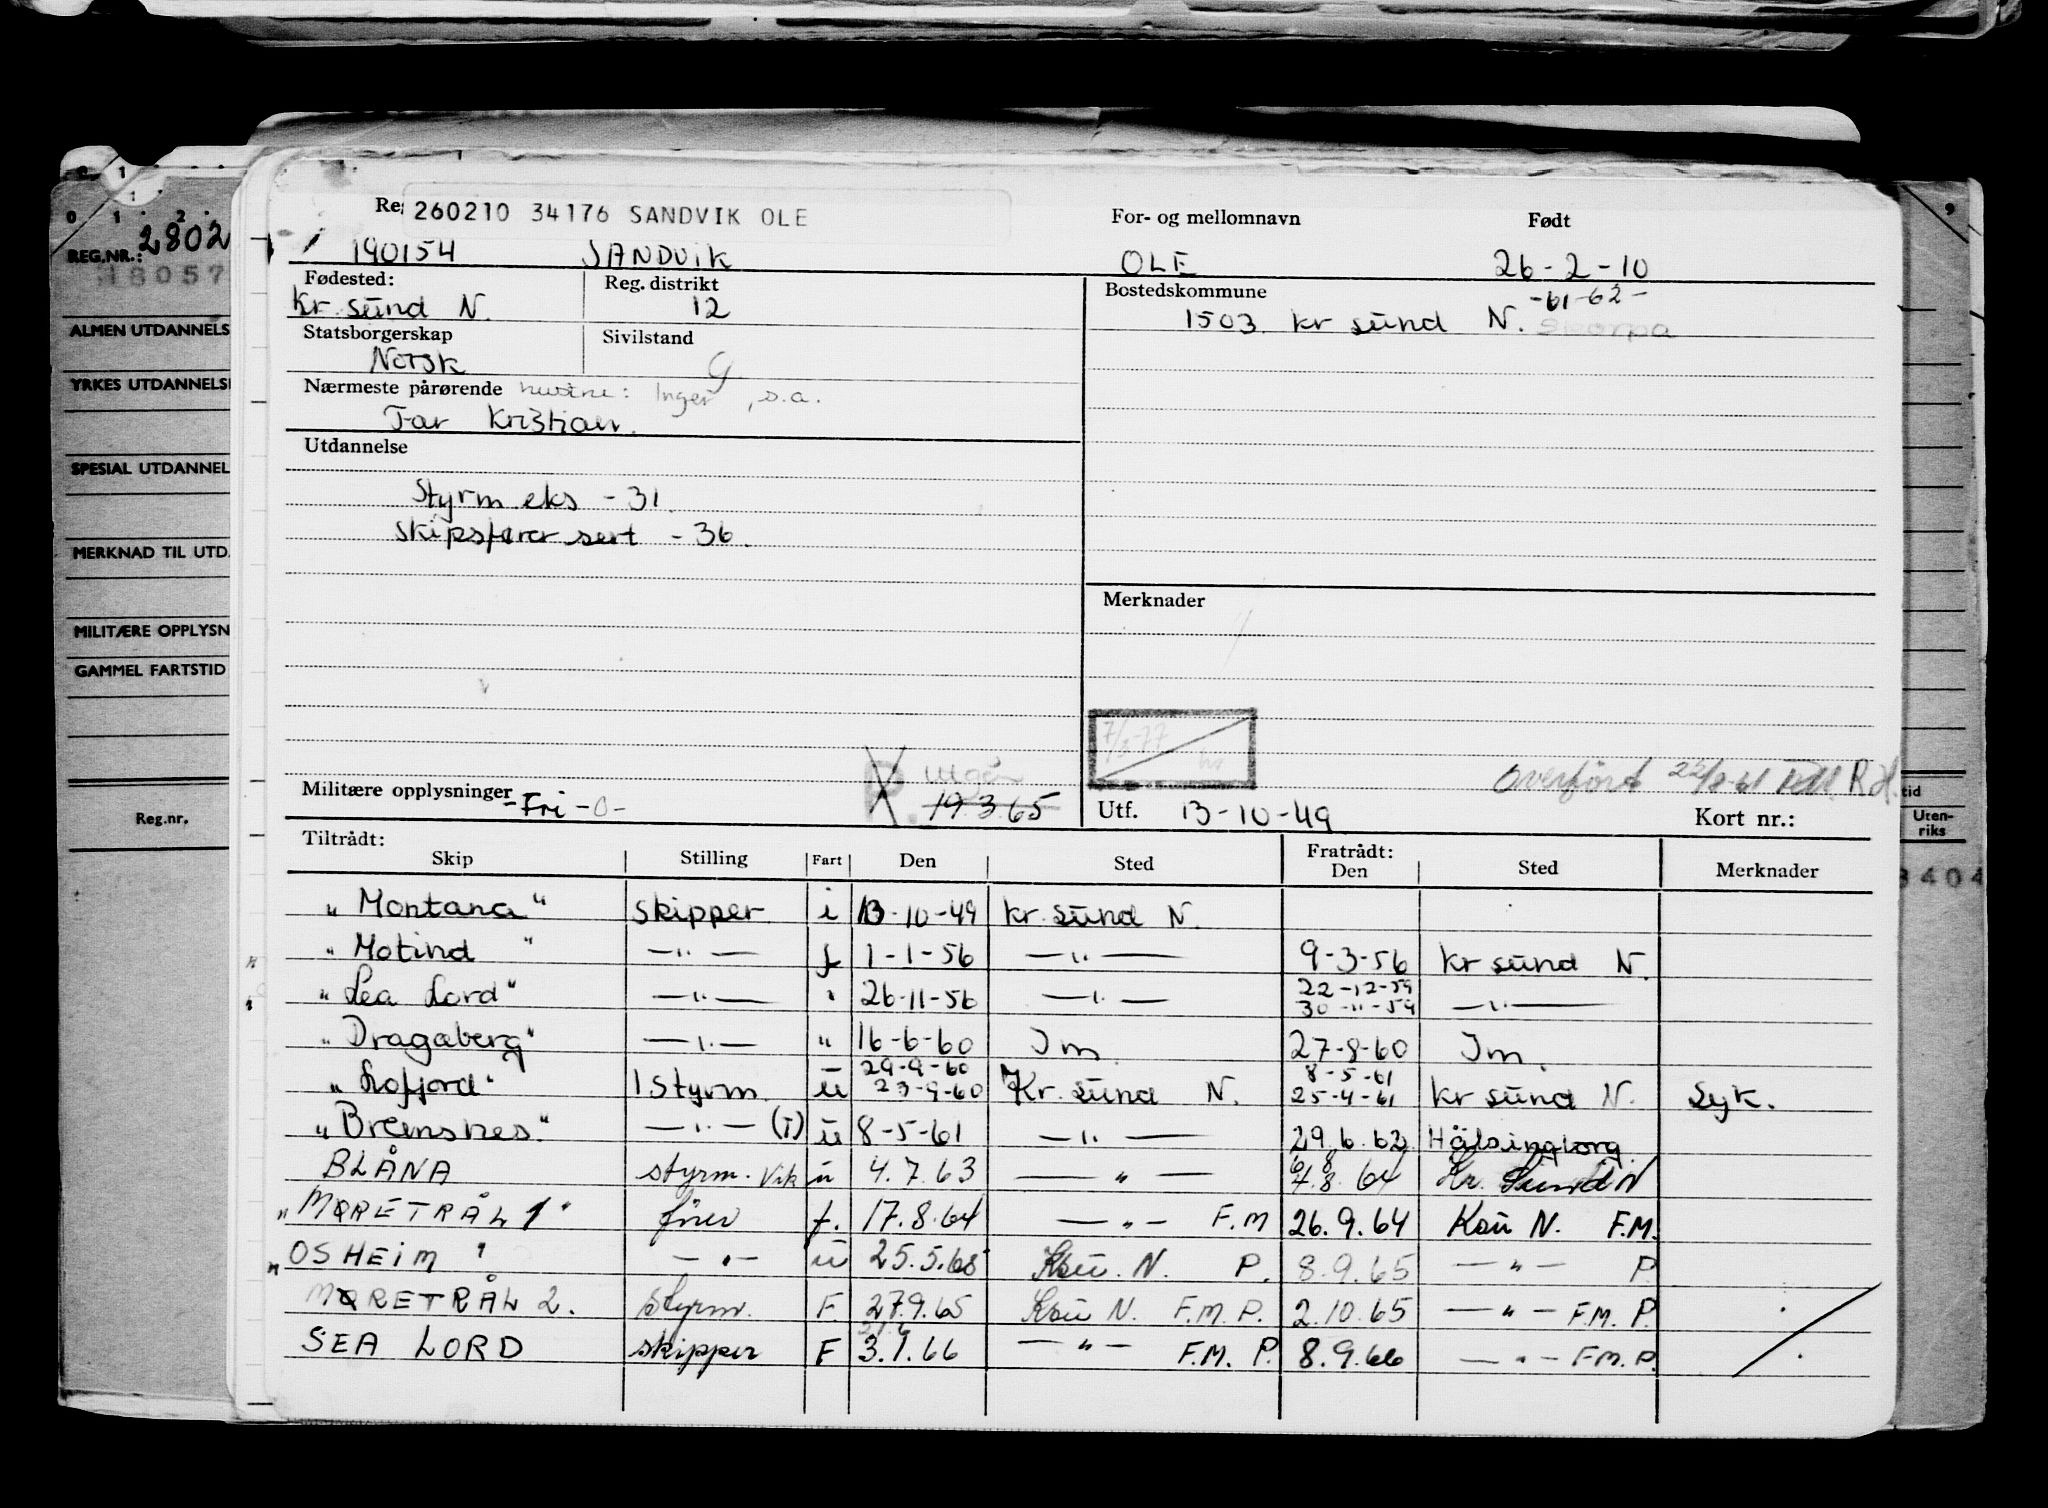 260210 34176 SANDVIK OLE
For- og mellomnavn Født
190154 SANDVIK OLE 26-2-10
Fødested: Reg. distrikt Bostedskommune
Kr. sund N. 12 1503 Kr sund N. -61-62-
Skorpa
Statsborgerskap Sivilstand
Norsk G
Nærmeste pårørende hustru: Inger, s.a.
Far Kristian.
Utdannelse
Styrm eks - 31.
Skipsfører sert - 36.
Merknader
Militære opplysninger -Fri-0-
P. utgår
19.3.65
7/2-77
Overført 22/8-61 Rd.
Utf. 13-10-49 Kort nr.:
Tiltrådt: Fratrådt:
Skip Stilling Fart Den Sted Den Sted Merknader
"Montana" skipper i 13-10-49 Kr. sund N.
"Motind" —"— f 1-1-56 —"— 9-3-56 Kr sund N.
"Sea Lord" —"— " 26-11-56 —"— 22-12-59 30-11-59 —"—
"Dragaberg" —"— " 16-6-60 Im. 27-8-60 Im.
"Lofjord" 1 styrm. u 29-9-60 23-9-60 Kr. sund N. 8-5-61 25-4-61 Kr sund N. Syk.
"Bremsnes" —"— (I) u 8-5-61 —"— 29.6.62 Hälsingborg.
BLÅNA styrm. vik u 4.7.63 —"— 6.8 7.8.64 Kr. Sund N
"MØRETRÅL 1" fører f. 17.8.64 —"— F.M 26.9.64 Ksu N. F.M.
"OSHEIM" —"— u 25.5.65 Ksu. N. P. 8.9.65 —"— P
MØRETRÅL 2. styrm. F. 27.9.65 Ksu N. F.M.P. 2.10.65 —"— F.M. P.
SEA LORD skipper F 3.1.66 —"— F.M. P. 8.9.66 —"— F.M.P.
REG.NR.: 2802
18057
ALMEN UTDANNELS
YRKES UTDANNELS
SPESIAL UTDANNEL
MERKNAD TIL UTD.
MILITÆRE OPPLYSN
GAMMEL FARTSTID
Reg.nr.
tid
Uten-
riks
3404